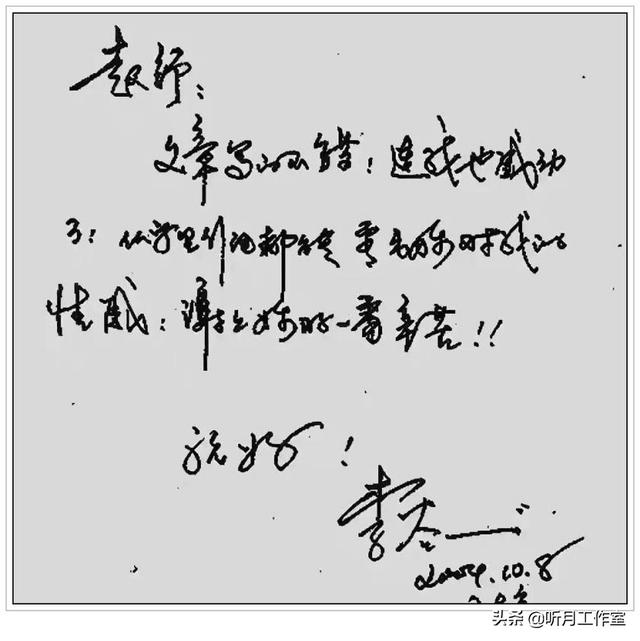 赵师：
文章写的不错！连我也感动
了！从字里行间都能 看 出你对我的
情感！谭老师的一番辛苦！！
祝好！
李
2004.10.8
头条 @听月工作室